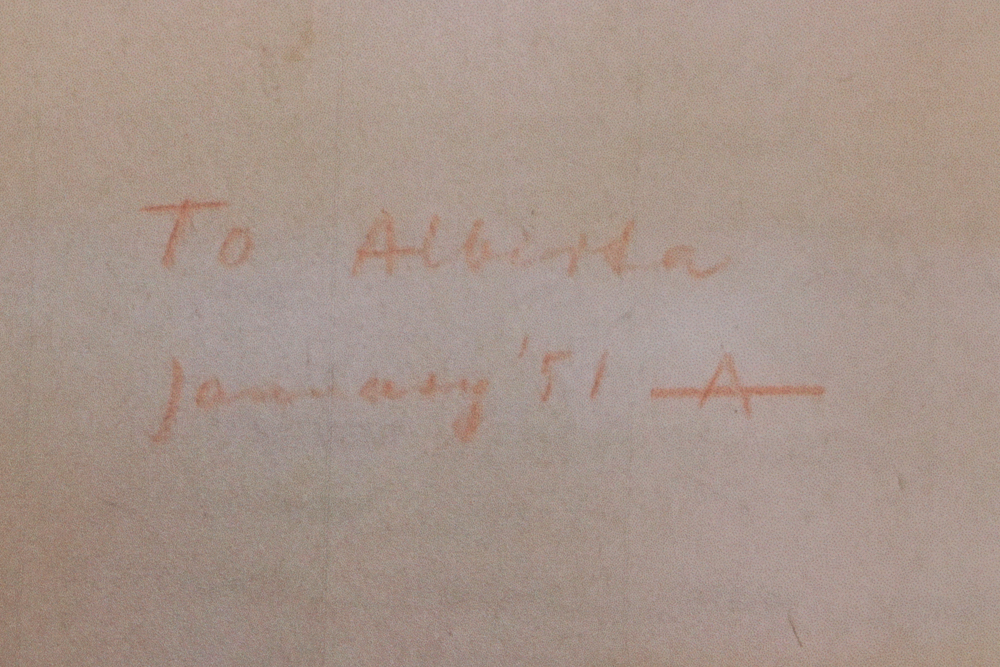 To Alberta
January '51 — A —